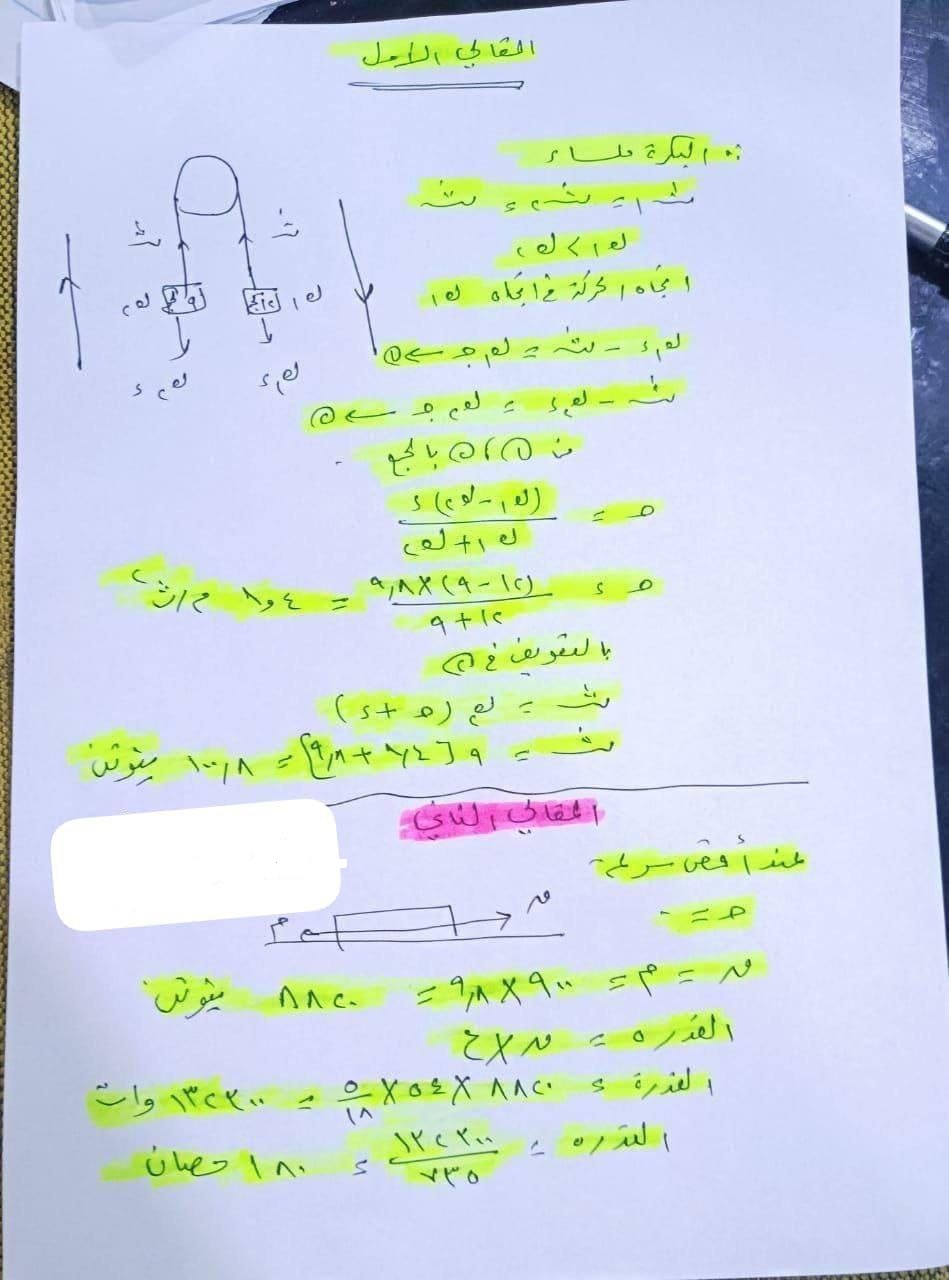 المقالي الأول
∵ البكرة ملساء
ش١ = ش٢ = ش
ك١ > ك٢
اتجاه الحركة في اتجاه ك١
ك١ء - ش = ك١ جـ ← ①
ش - ك٢ء = ك٢ جـ ← ②
من ①، ② بالجمع
جـ = (ك١ - ك٢) ء / ك١ + ك٢
جـ = (١٢ - ٩) × ٩,٨ / ١٢ + ٩ = ١,٤ م/ث٢
بالتعويض في ②
ش = ك٢ (جـ + ء)
ش = ٩ [١,٤ + ٩,٨] = ١٠٠,٨ نيوتن
ش ش
ك٢ ٩ ١٢ ك١
ك٢ء ك١ء
المقالي الثاني
عند أقصى سرعة
جـ = ٠
م ن
ن = م = ٩٠٠ × ٩,٨ = ٨٨٢٠ نيوتن
القدرة = ن × ع
القدرة = ٨٨٢٠ × ٥٤ × ٥/١٨ = ١٣٢٣٠٠ وات
القدره = ١٣٢٣٠٠ / ٧٣٥ = ١٨٠ حصان